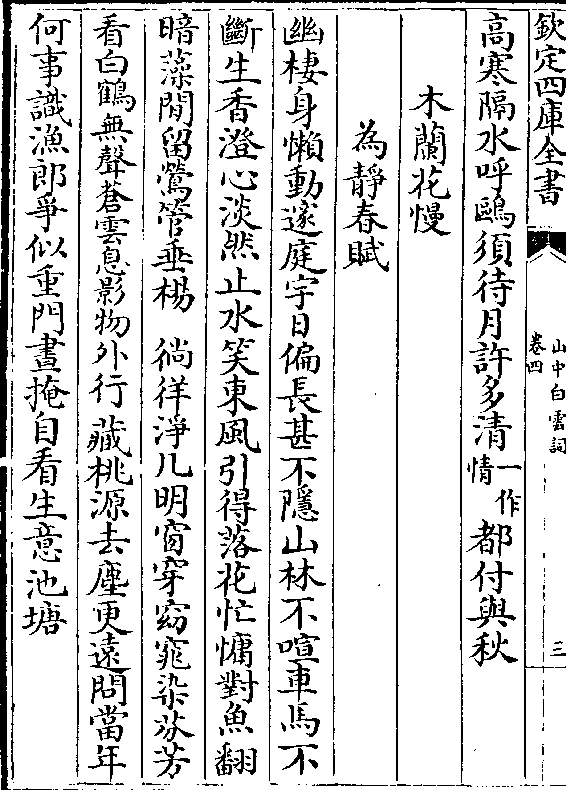 欽定四庫全書
山中白雲詞
卷四
三
高寒隔水呼鷗須待月許多清一作情都付與秋
木蘭花慢
為靜春賦
幽棲身懶動邃庭宇日偏長甚不隱山林不喧車馬不
斷生香澄心淡然止水笑東風引得落花忙慵對魚翻
暗藻閒留鶯管垂楊　徜徉淨几明窗穿窈窕染芬芳
看白鶴無聲蒼雲息影物外行藏桃源去塵更遠問當年
何事識漁郎爭似重門晝掩自看生意池塘